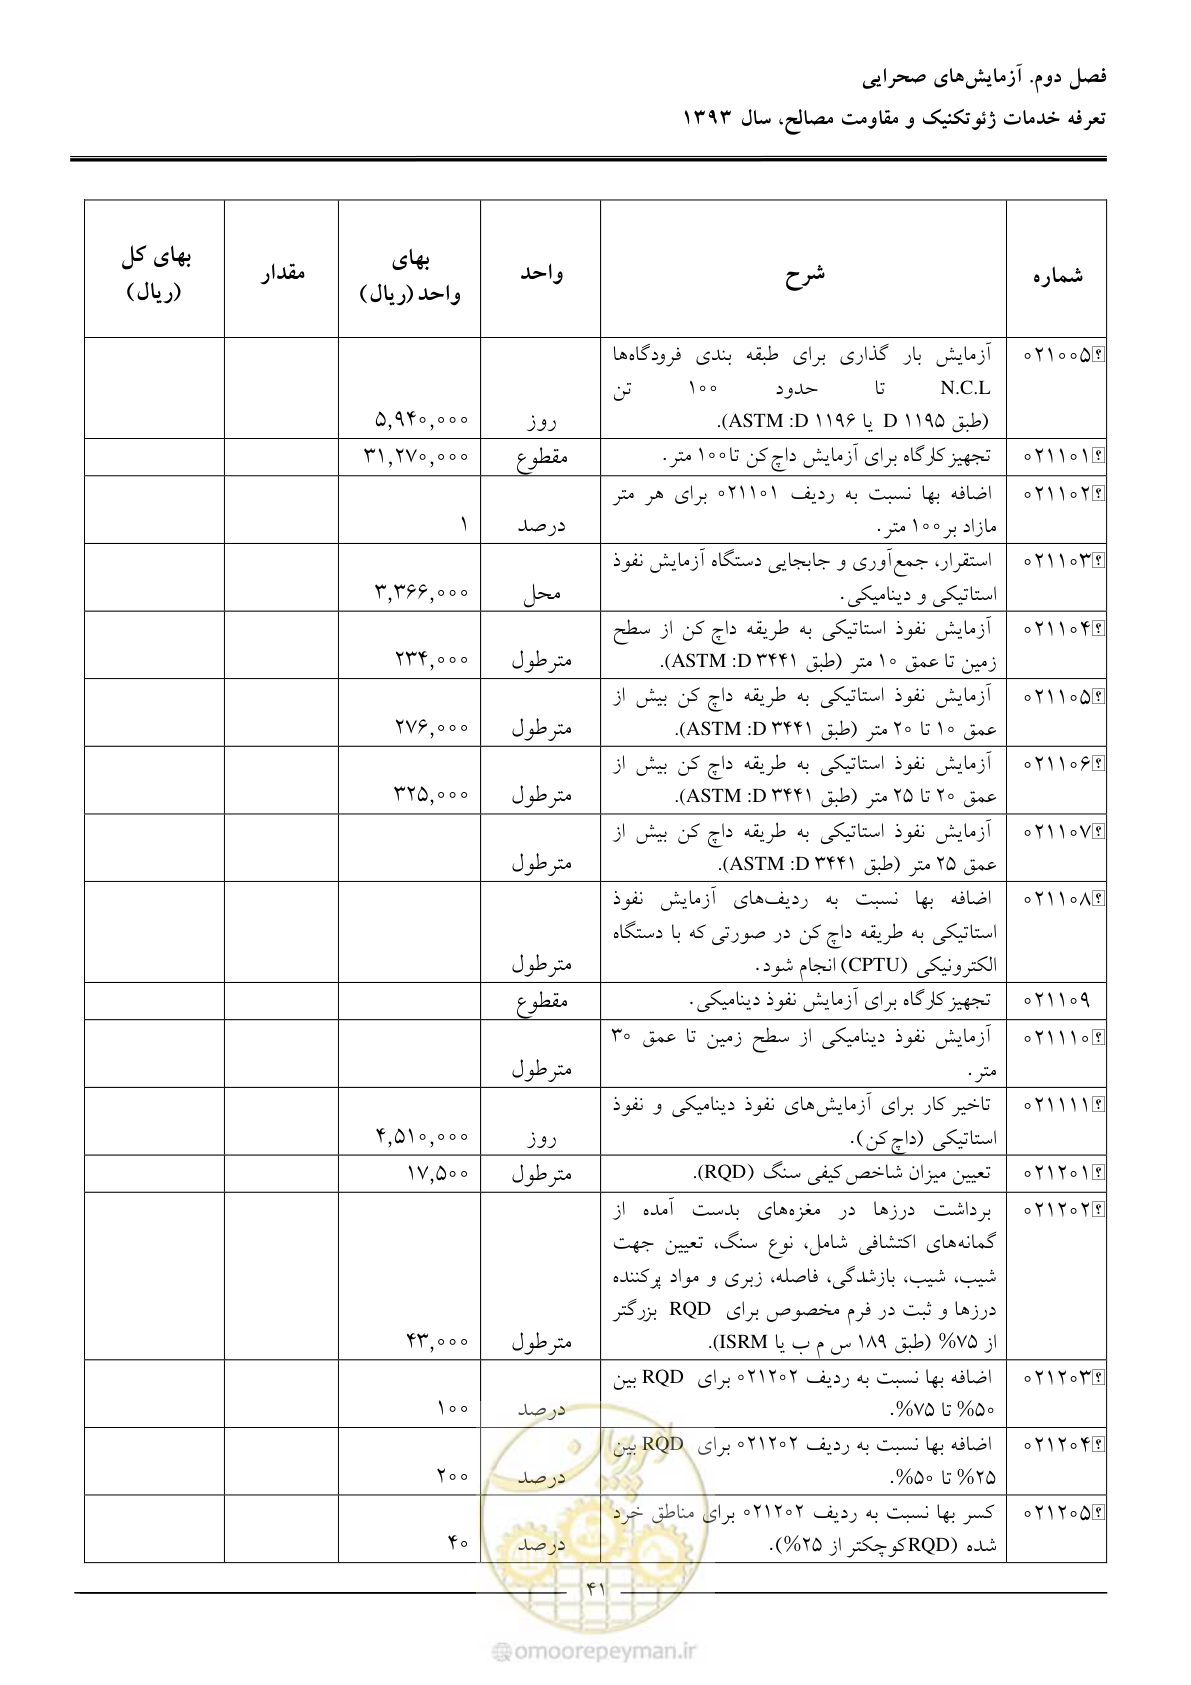 فصل دوم. آزمایش‌های صحرایی
تعرفه خدمات ژئوتکنیک و مقاومت مصالح، سال ۱۳۹۳
شماره شرح واحد بهای واحد (ریال) مقدار بهای کل (ریال)
۰۲۱۰۰۵ آزمایش بار گذاری برای طبقه بندی فرودگاه‌ها
N.C.L تا حدود ۱۰۰ تن
(طبق D ۱۱۹۵ یا ASTM :D ۱۱۹۶). روز ۵,۹۴۰,۰۰۰
۰۲۱۱۰۱ تجهیز کارگاه برای آزمایش داچ کن تا ۱۰۰ متر. مقطوع ۳۱,۲۷۰,۰۰۰
۰۲۱۱۰۲ اضافه بها نسبت به ردیف ۰۲۱۱۰۱ برای هر متر
مازاد بر ۱۰۰ متر. درصد ۱
۰۲۱۱۰۳ استقرار، جمع‌آوری و جابجایی دستگاه آزمایش نفوذ
استاتیکی و دینامیکی. محل ۳,۳۶۶,۰۰۰
۰۲۱۱۰۴ آزمایش نفوذ استاتیکی به طریقه داچ کن از سطح
زمین تا عمق ۱۰ متر (طبق ASTM :D ۳۴۴۱). مترطول ۲۳۴,۰۰۰
۰۲۱۱۰۵ آزمایش نفوذ استاتیکی به طریقه داچ کن بیش از
عمق ۱۰ تا ۲۰ متر (طبق ASTM :D ۳۴۴۱). مترطول ۲۷۶,۰۰۰
۰۲۱۱۰۶ آزمایش نفوذ استاتیکی به طریقه داچ کن بیش از
عمق ۲۰ تا ۲۵ متر (طبق ASTM :D ۳۴۴۱). مترطول ۳۲۵,۰۰۰
۰۲۱۱۰۷ آزمایش نفوذ استاتیکی به طریقه داچ کن بیش از
عمق ۲۵ متر (طبق ASTM :D ۳۴۴۱). مترطول
۰۲۱۱۰۸ اضافه بها نسبت به ردیف‌های آزمایش نفوذ
استاتیکی به طریقه داچ کن در صورتی که با دستگاه
الکترونیکی (CPTU) انجام شود. مترطول
۰۲۱۱۰۹ تجهیز کارگاه برای آزمایش نفوذ دینامیکی. مقطوع
۰۲۱۱۱۰ آزمایش نفوذ دینامیکی از سطح زمین تا عمق ۳۰
متر. مترطول
۰۲۱۱۱۱ تاخیر کار برای آزمایش‌های نفوذ دینامیکی و نفوذ
استاتیکی (داچ کن). روز ۴,۵۱۰,۰۰۰
۰۲۱۲۰۱ تعیین میزان شاخص کیفی سنگ (RQD). مترطول ۱۷,۵۰۰
۰۲۱۲۰۲ برداشت درزها در مغزه‌های بدست آمده از
گمانه‌های اکتشافی شامل، نوع سنگ، تعیین جهت
شیب، شیب، بازشدگی، فاصله، زبری و مواد پرکننده
درزها و ثبت در فرم مخصوص برای RQD بزرگتر
از ۷۵% (طبق ۱۸۹ س م ب یا ISRM). مترطول ۴۳,۰۰۰
۰۲۱۲۰۳ اضافه بها نسبت به ردیف ۰۲۱۲۰۲ برای RQD بین
۵۰% تا ۷۵%. درصد ۱۰۰
۰۲۱۲۰۴ اضافه بها نسبت به ردیف ۰۲۱۲۰۲ برای RQD بین
۲۵% تا ۵۰%. درصد ۲۰۰
۰۲۱۲۰۵ کسر بها نسبت به ردیف ۰۲۱۲۰۲ برای مناطق خرد
شده (RQD کوچکتر از ۲۵%). درصد ۴۰
۴۱
@omoorepeyman.ir